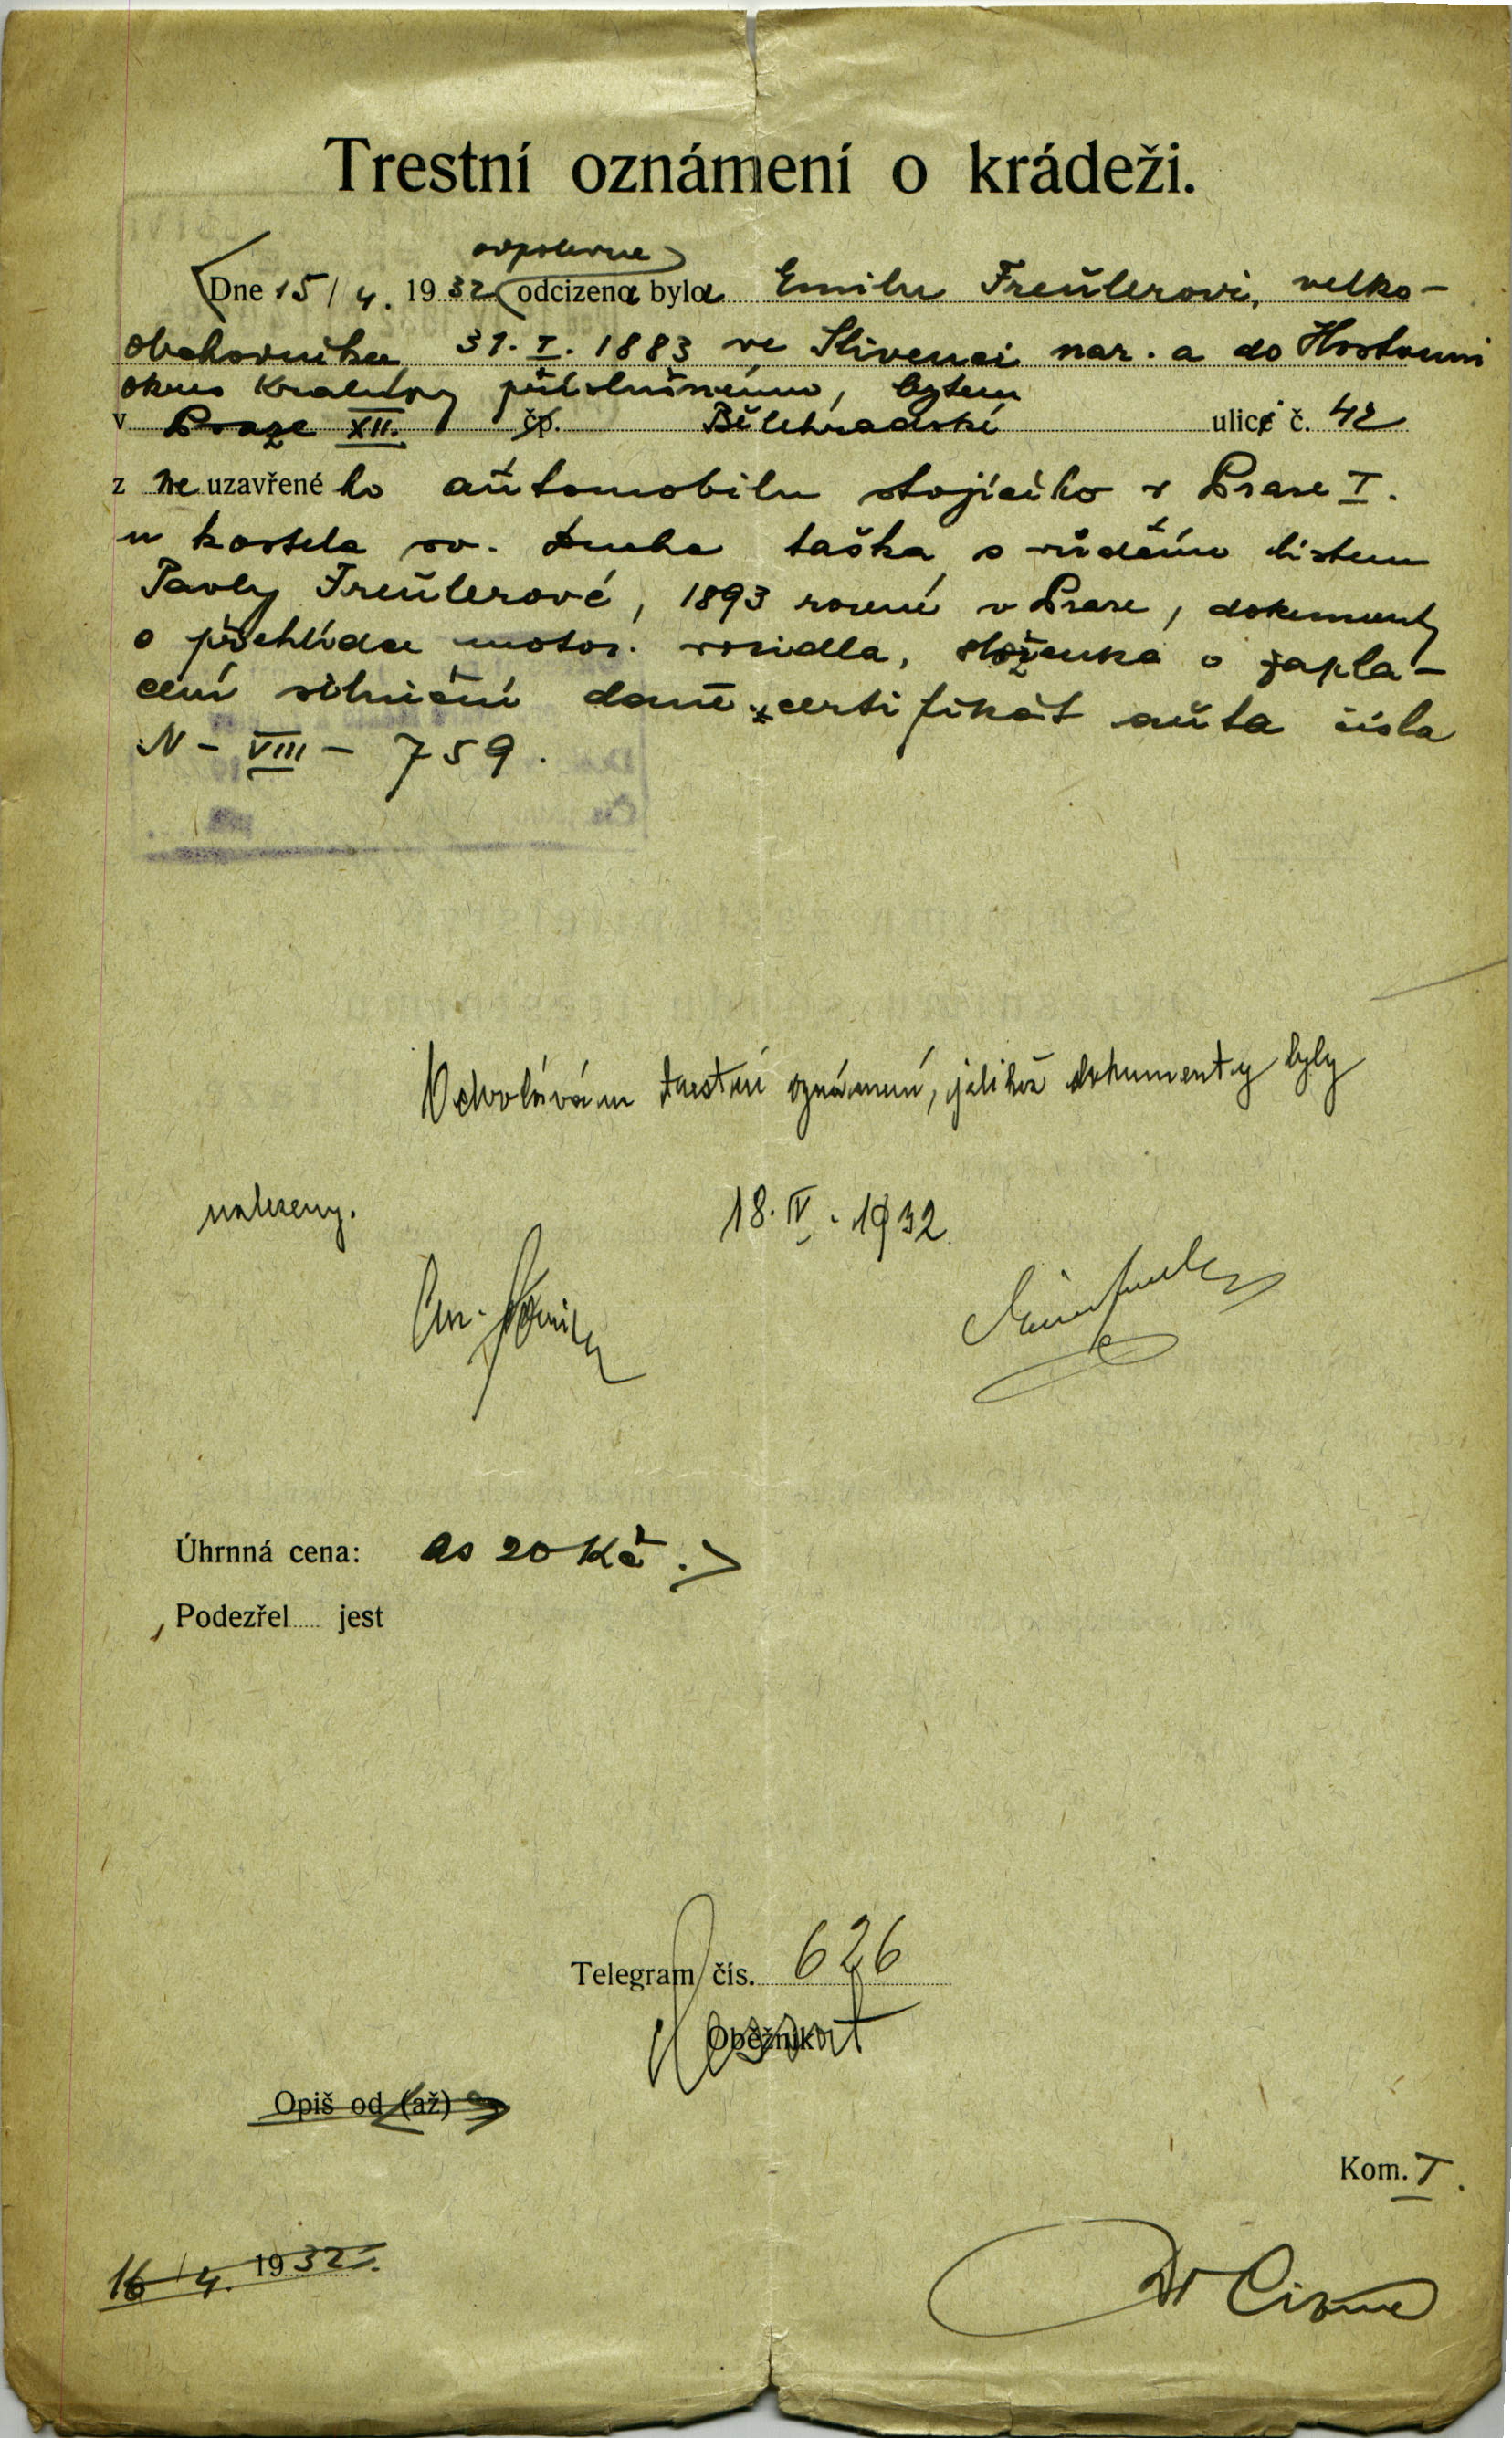 Trestní oznámení o krádeži.
odpoledne
Dne 15/4. 1932 odcizena byla Emilu Freülerovi, velko-
obchodníku 31. I. 1883 ve Slivenci nar. a do Hostouni
okres Kralupy příslušnému, bytem
v Praze XII. čp. Bělehradské ulici č. 42
z neuzavřeného aůtomobilu stojícího v Praze I.
u kostela sv. Ducha taška s vůdčím listem
Pavly Freülerové, 1893 rozené v Praze, dokumenty
o přehlídce motor. vozidla, složenka o zapla-
cení silniční daně certifikát aůta čísla
N - VIII - 759.
Odvolávám trestní oznámení, jelikož dokumenty byly
nalezeny. 18. IV. 1932
Úhrnná cena: as 20 Kč.
Podezřel jest
Telegram čís. 626
Oběžník
Opiš od (až)
Kom. I.
16/4. 1932.
Dr